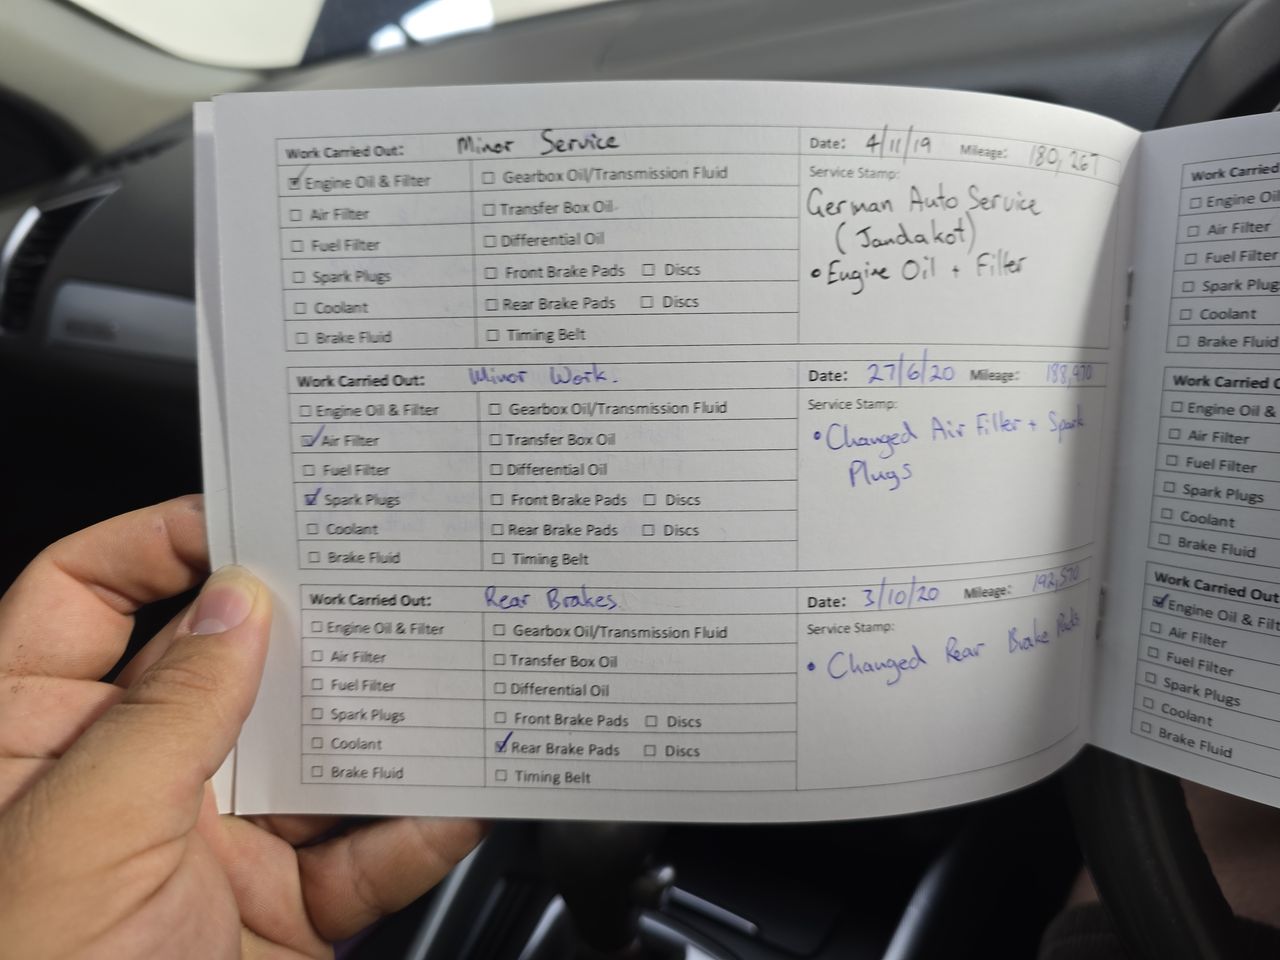 Work Carried Out: Minor Service
Date: 4/11/19 Mileage: 180,267
☑ Engine Oil & Filter ☐ Gearbox Oil/Transmission Fluid
☐ Air Filter ☐ Transfer Box Oil
☐ Fuel Filter ☐ Differential Oil
☐ Spark Plugs ☐ Front Brake Pads ☐ Discs
☐ Coolant ☐ Rear Brake Pads ☐ Discs
☐ Brake Fluid ☐ Timing Belt
Service Stamp:
German Auto Service
(Jandakot)
• Engine Oil + Filter
Work Carried Out: Minor Work.
Date: 27/6/20 Mileage: 188,970
☐ Engine Oil & Filter ☐ Gearbox Oil/Transmission Fluid
☑ Air Filter ☐ Transfer Box Oil
☐ Fuel Filter ☐ Differential Oil
☑ Spark Plugs ☐ Front Brake Pads ☐ Discs
☐ Coolant ☐ Rear Brake Pads ☐ Discs
☐ Brake Fluid ☐ Timing Belt
Service Stamp:
• Changed Air Filter + Spark
Plugs
Work Carried Out: Rear Brakes.
Date: 3/10/20 Mileage: 192,570
☐ Engine Oil & Filter ☐ Gearbox Oil/Transmission Fluid
☐ Air Filter ☐ Transfer Box Oil
☐ Fuel Filter ☐ Differential Oil
☐ Spark Plugs ☐ Front Brake Pads ☐ Discs
☐ Coolant ☑ Rear Brake Pads ☐ Discs
☐ Brake Fluid ☐ Timing Belt
Service Stamp:
• Changed Rear Brake Pads
Work Carried
☐ Engine Oil
☐ Air Filter
☐ Fuel Filter
☐ Spark Plug
☐ Coolant
☐ Brake Fluid
Work Carried
☐ Engine Oil &
☐ Air Filter
☐ Fuel Filter
☐ Spark Plugs
☐ Coolant
☐ Brake Fluid
Work Carried Out
☑ Engine Oil & Filt
☐ Air Filter
☐ Fuel Filter
☐ Spark Plugs
☐ Coolant
☐ Brake Fluid